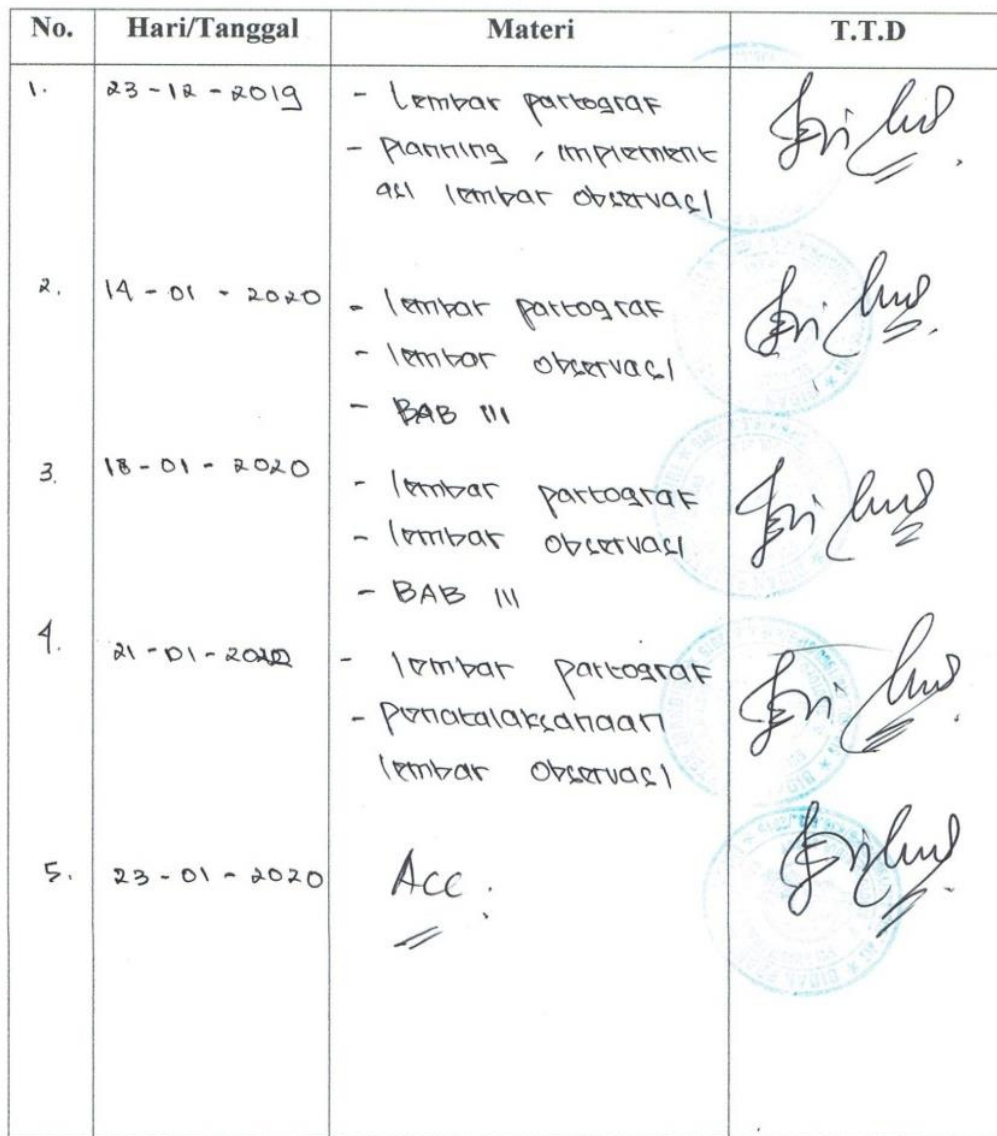 No. Hari/Tanggal Materi T.T.D
1. 23-12-2019 - Lembar partograf
- Planning, implement
asi lembar observasi
2. 14-01-2020 - lembar partograf
- lembar observasi
- BAB III
3. 18-01-2020 - lembar partograf
- lembar observasi
- BAB III
4. 21-01-2020 - lembar partograf
- penatalaksanaan
lembar observasi
5. 23-01-2020 Acc.